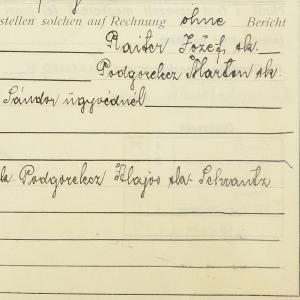 stellen solchen auf Rechnung ohne Bericht
Raiter József ok.
Podgorelecz Márton ok.
Sándor ügyvédnél
Podgorelecz Alajos Schrantz